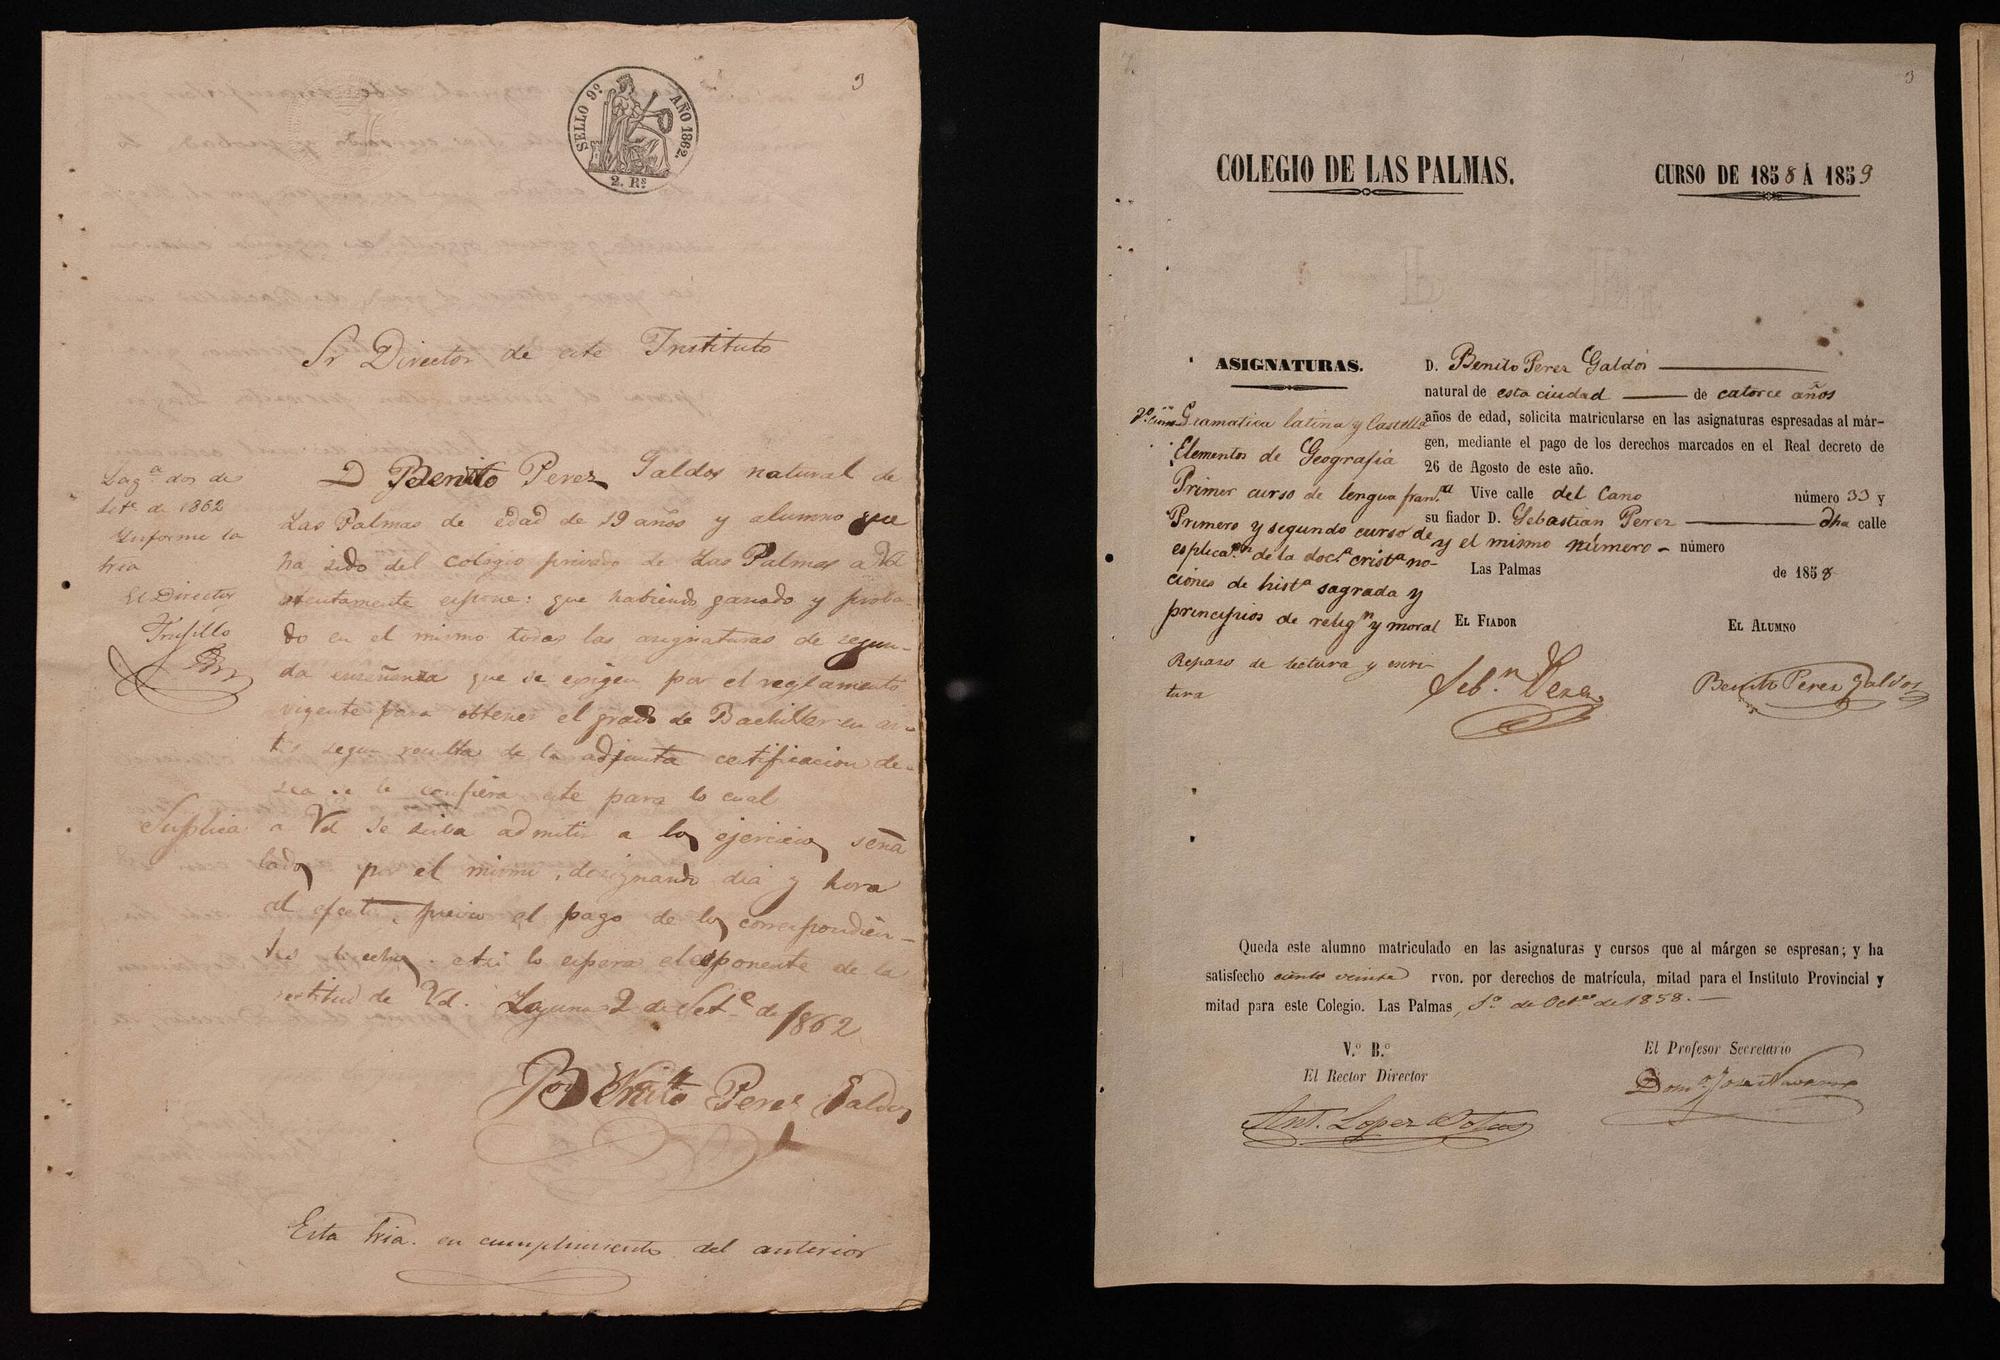 3
SELLO 9º AÑO 1862.
2. Rs
Sr Director de este Instituto
Lagª dos de
Setº de 1862
Informe la
tria
El Director
Trujillo
D Benito Perez Galdos natural de
Las Palmas de edad de 19 años y alumno que
ha sido del colegio privado de Las Palmas a Vd
atentamente espone: que habiendo ganado y proba-
do en el mismo todas las asignaturas de segun-
da enseñenza que se exigen por el reglamento
vigente para obtener el grado de Bachiller en ar-
tes segun resulta de la adjunta certificacion de-
sea se le confiera este para lo cual
Suplica a Vd se sirva admitir a los ejercicios seña
lados por el mismo, designando dia y hora
al efecto, previo el pago de los correspondien-
tes derechos. Asi lo espera el esponente de la
rectitud de Vd. Laguna 2 de Setº de 1862
Benito Perez Galdos
Esta Sria. en cumplimiento del anterior
3
COLEGIO DE LAS PALMAS.
CURSO DE 1858 Á 1859
ASIGNATURAS.
Gramatica latina y Castellª
Elementos de Geografia
Primer curso de lengua franª
Primero y segundo curso de
esplicaºn de la docª cristª no-
ciones de histª sagrada y
principios de religⁿ y moral
Repaso de lectura y escri-
tura
D. Benito Perez Galdós
natural de esta ciudad de catorce años
años de edad, solicita matricularse en las asignaturas espresadas al már-
gen, mediante el pago de los derechos marcados en el Real decreto de
26 de Agosto de este año.
Vive calle del Cano número 33 y
su fiador D. Sebastian Perez dha calle
y el mismo número - número
Las Palmas de 1858
EL FIADOR
EL ALUMNO
Sebⁿ Perez
Benito Perez Galdos
Queda este alumno matriculado en las asignaturas y cursos que al márgen se espresan; y ha
satisfecho ciento veinte rvon. por derechos de matrícula, mitad para el Instituto Provincial y
mitad para este Colegio. Las Palmas, 1º de Octre de 1858.
V.º B.º
El Rector Director
Ant. Lopez Botas
El Profesor Secretario
Domº José Navarro